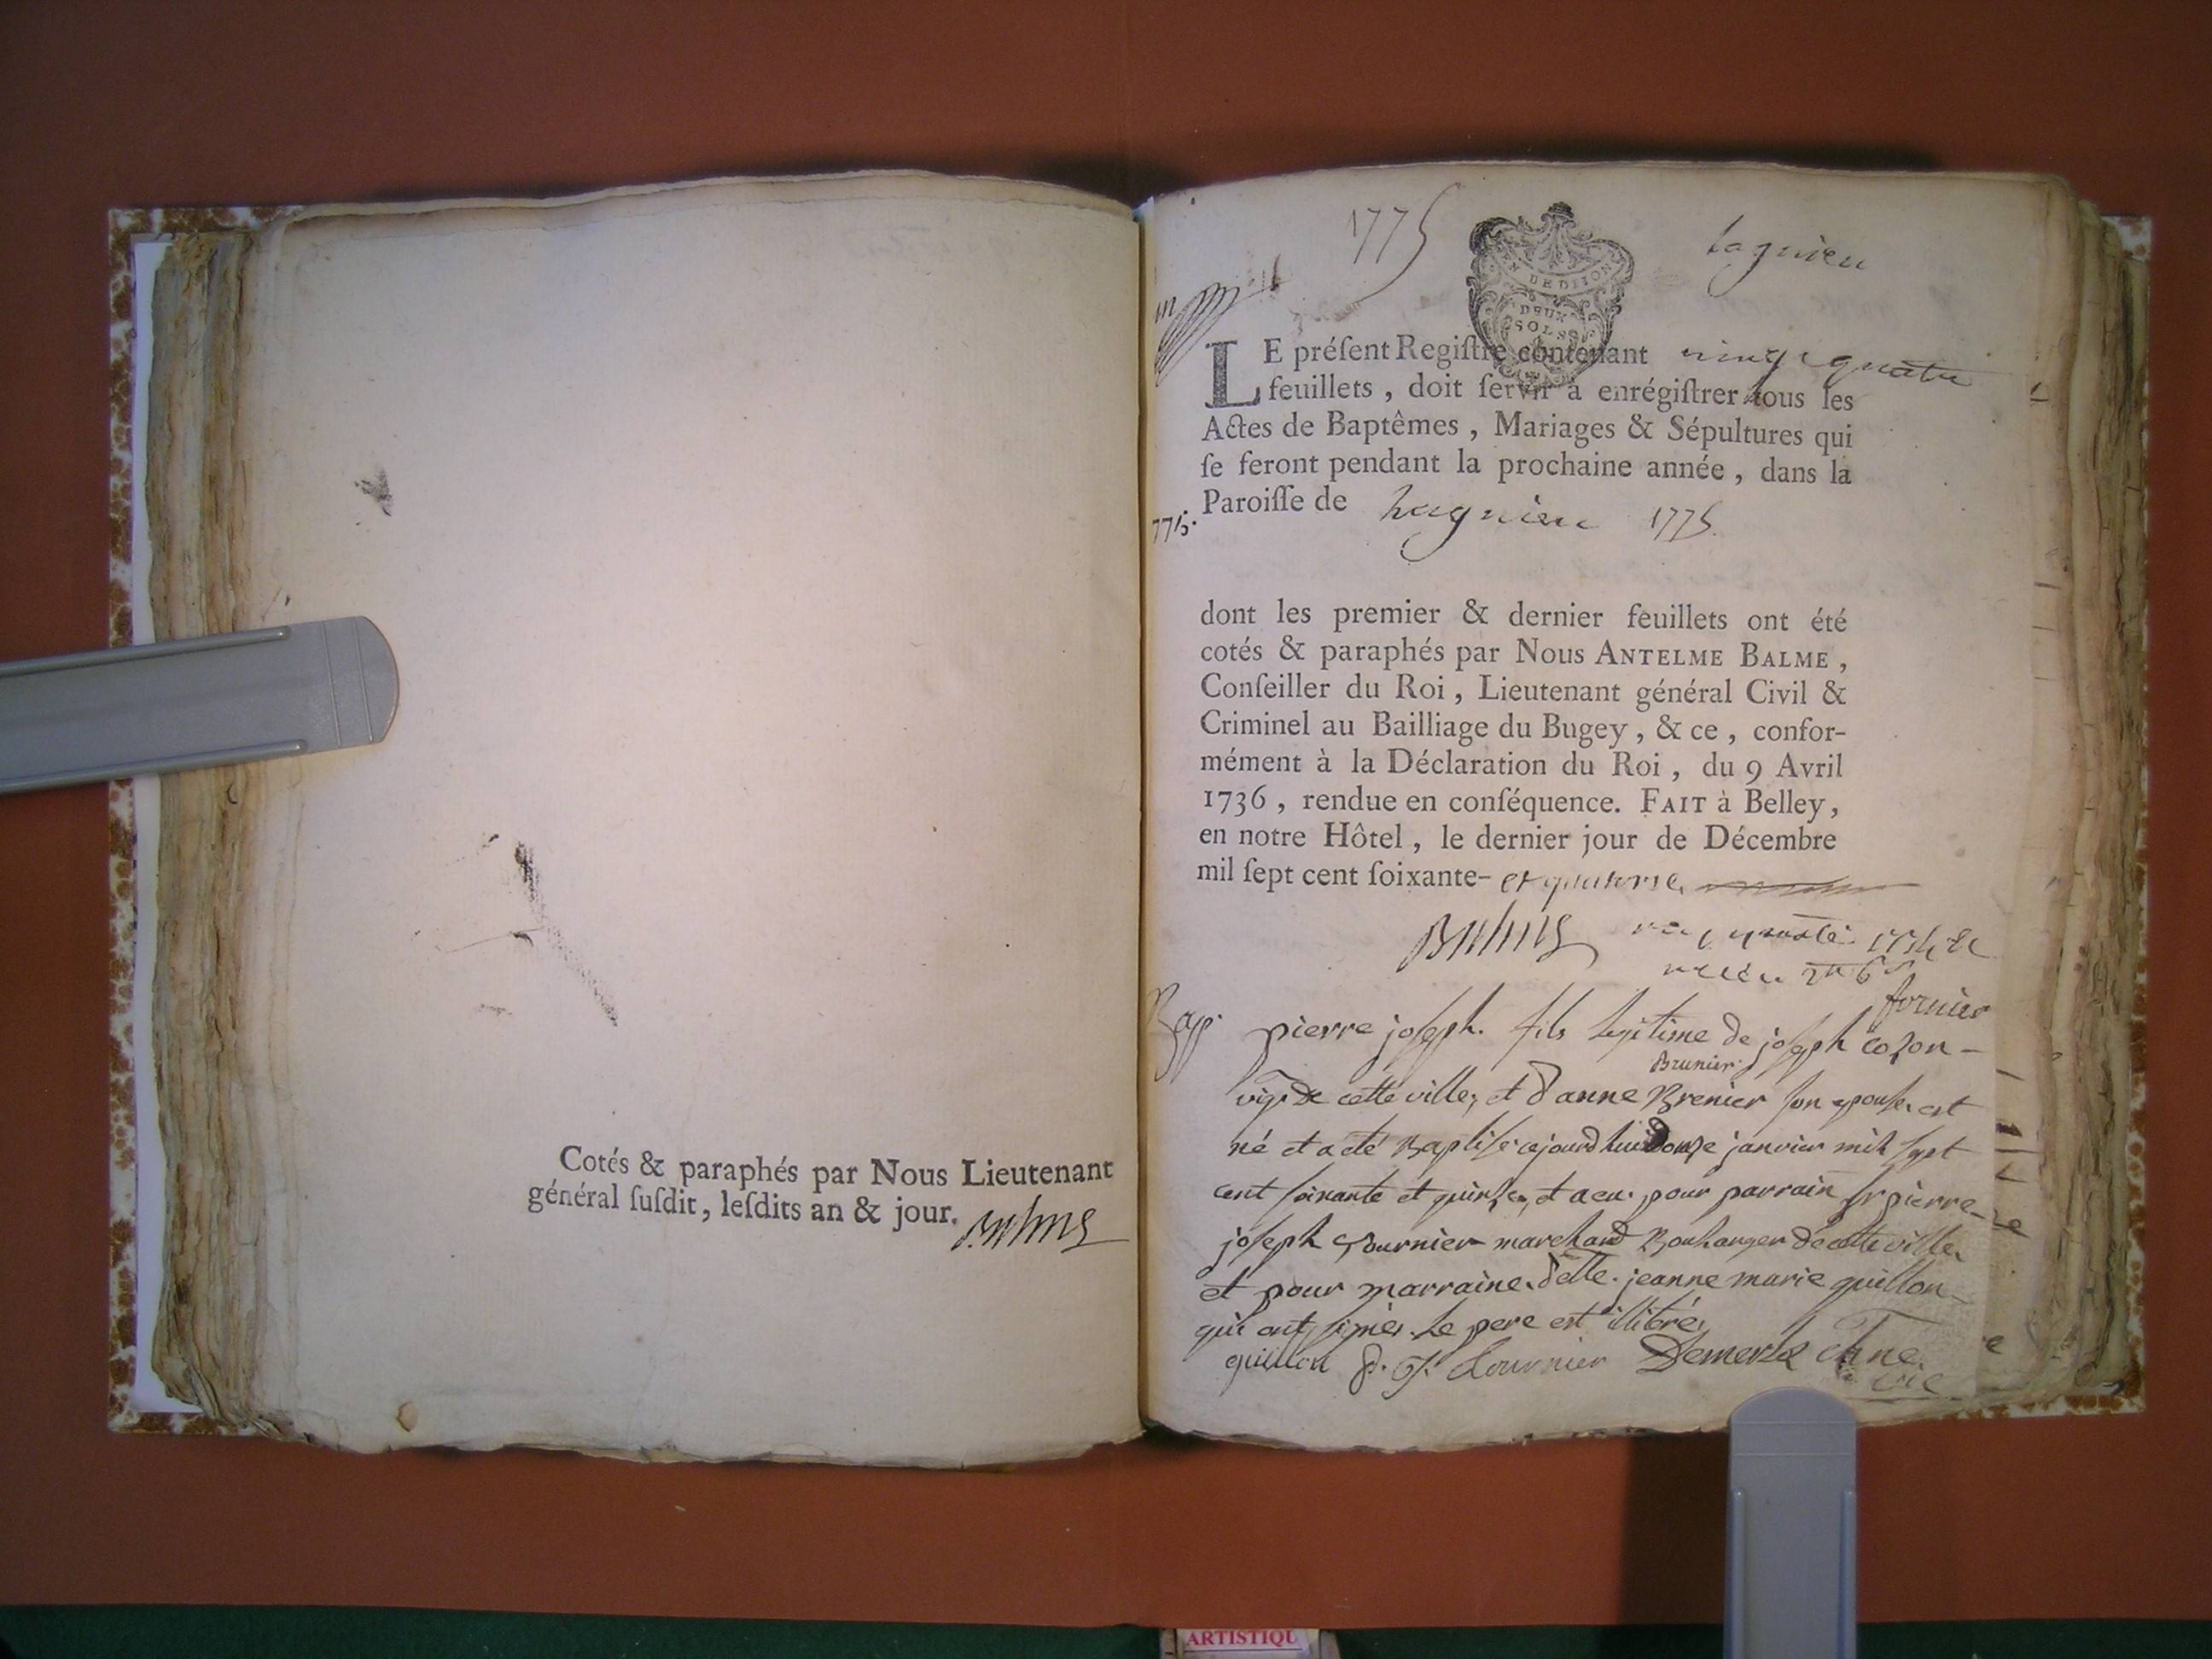 Cotés & paraphés par Nous Lieutenant
général ſuſdit, leſdits an & jour.
1775
lagnieu
DEUX
SOLS
LE préſent Regiſtre contenant vingt quatre
feuillets, doit ſervir à enrégiſtrer tous les
Actes de Baptêmes, Mariages & Sépultures qui
ſe feront pendant la prochaine année, dans la
Paroiſſe de Lagnieu 1775.
775.
dont les premier & dernier feuillets ont été
cotés & paraphés par Nous ANTELME BALME,
Conſeiller du Roi, Lieutenant général Civil &
Criminel au Bailliage du Bugey, & ce, confor-
mément à la Déclaration du Roi, du 9 Avril
1736, rendue en conſéquence. FAIT à Belley,
en notre Hôtel, le dernier jour de Décembre
mil ſept cent ſoixante- et quatorze
Balme
fornier
Bap. pierre joseph. fils legitime de joseph cozon-
Brunier
vig. de cette ville, et d'anne Brenier son epouse, est
né et a eté Baptisé cejourd'hui douze janvier mil sept
cent soixante et quinze, et a eu pour parrain sr pierre
joseph fournier marchand Boulanger de cette ville
et pour marraine delle. jeanne marie quillon
qui ont signés. le pere est illitré
quillon p. j. fournier Demerloz